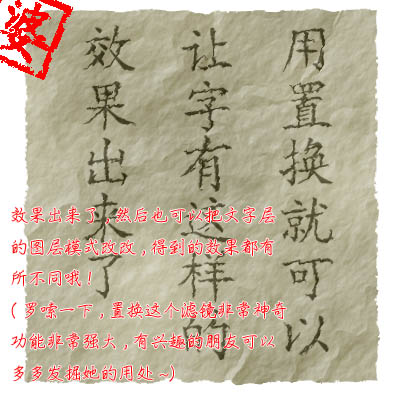 婆
用置换就可以
让字有这样的
效果出来了
效果出来了，然后也可以把文字层
的图层模式改改，得到的效果都有
所不同哦！
（罗嗦一下，置换这个滤镜非常神奇
功能非常强大，有兴趣的朋友可以
多多发掘她的用处~）